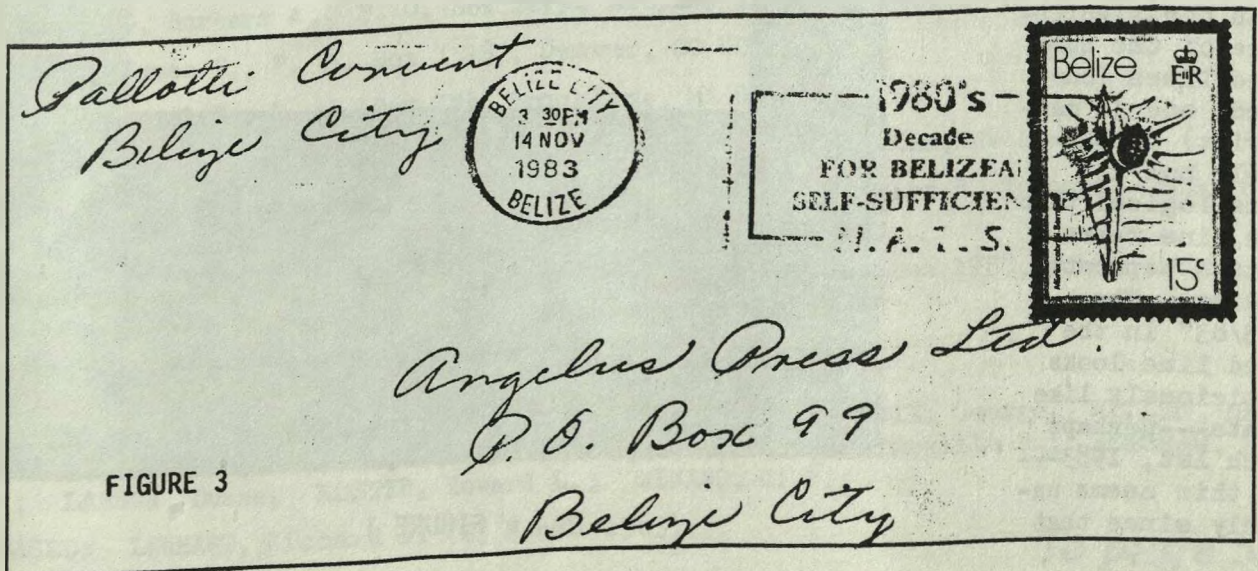 Pallotti Convent
Belize City
BELIZE CITY
3 30PM
14 NOV
1983
BELIZE
1980's
Decade
FOR BELIZEA
SELF-SUFFICIEN
Belize E R
15c
Angelus Press Ltd.
P.O. Box 99
Belize City
FIGURE 3